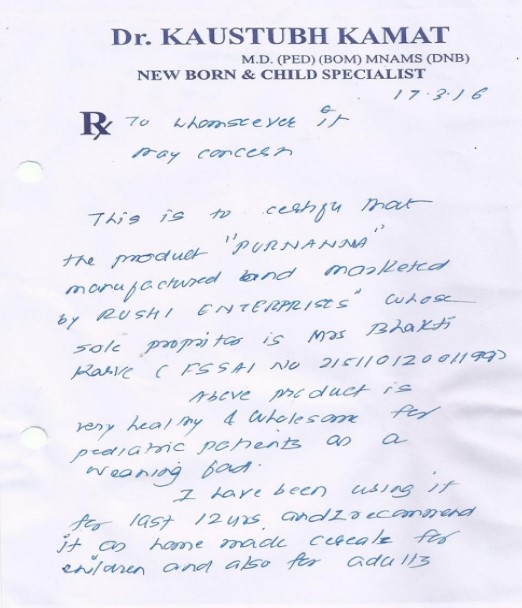 Dr. KAUSTUBH KAMAT
M.D. (PED) (BOM) MNAMS (DNB)
NEW BORN & CHILD SPECIALIST
17.3.16
Rx To whomsoever it
may concern
This is to certify that
the product "PURNANNA"
manufactured and marketed
by RUSHI ENTERPRISES" whose
sole propritor is Mrs Bhakti
Karve (FSSAI NO
Above product is
very healthy & wholesome for
pediatric patients as a
weaning food.
I have been using it
for last 12 yrs and I recommend
it as home made cereals for
children and also for adults